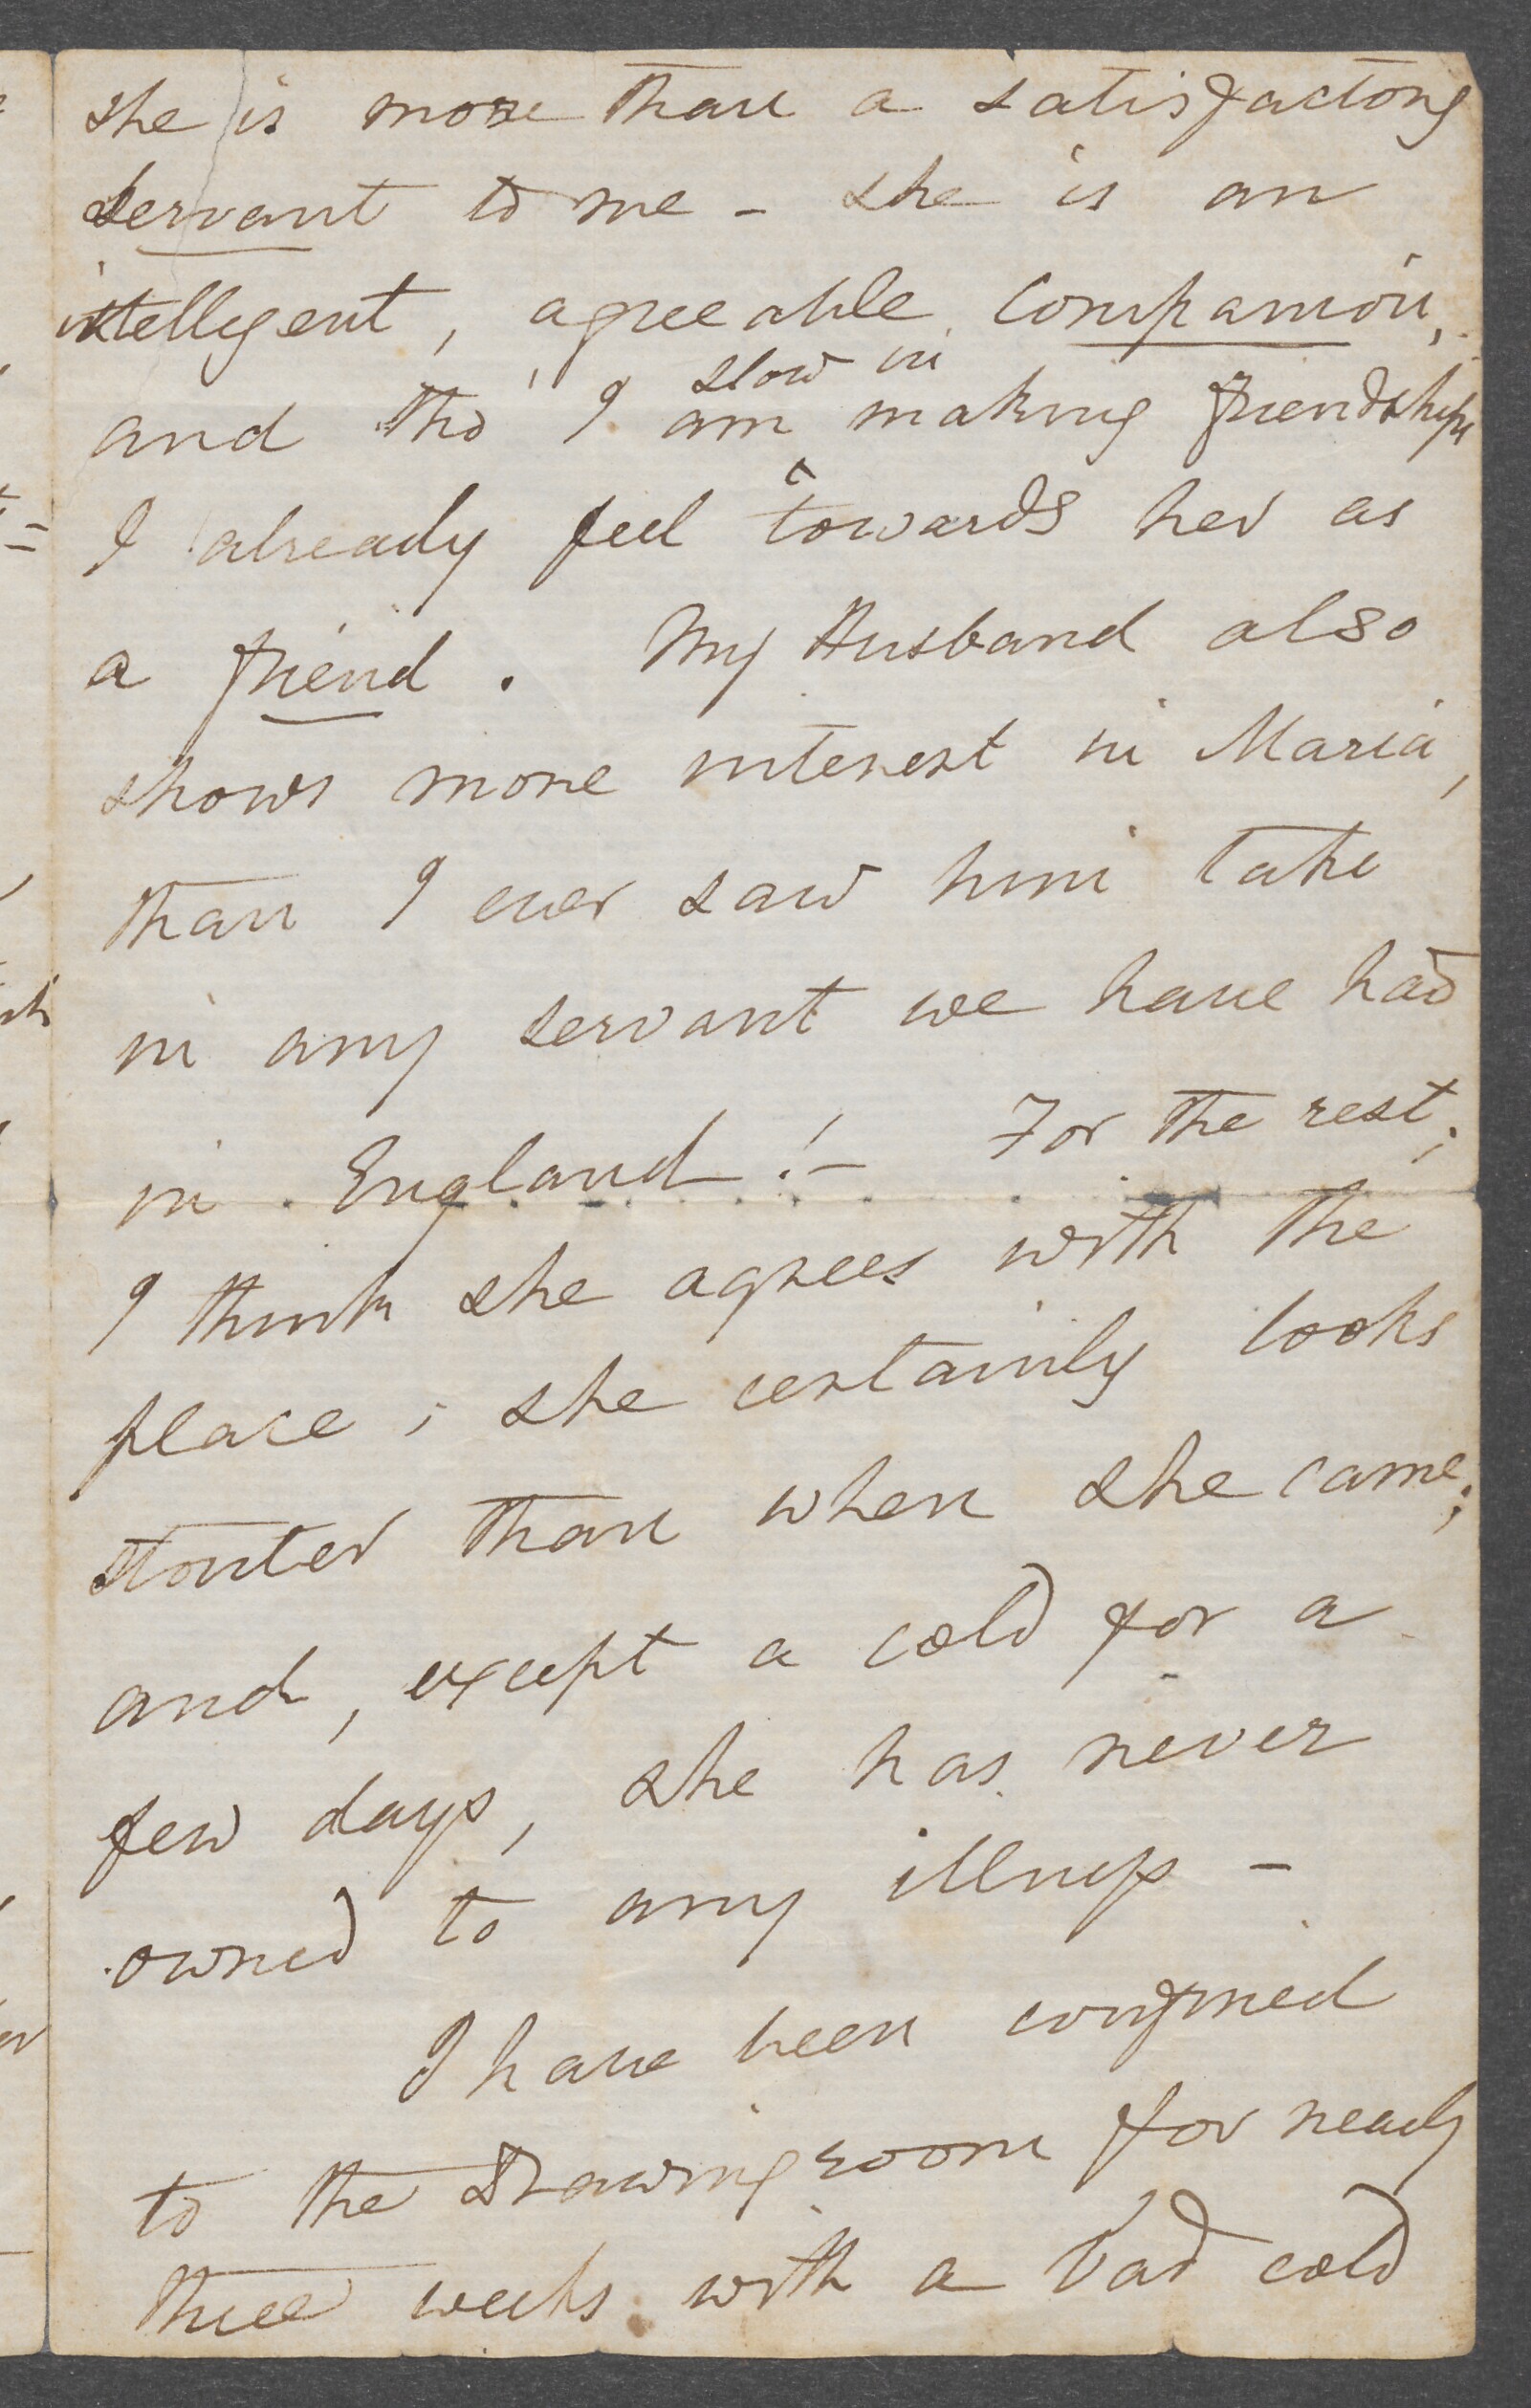 she is more than a satisfactory
servant to me - she is an
intelligent, agreeable companion,
and tho' I am slow in making friendships
I already feel towards her as
a friend. My Husband also
shows more interest in Maria,
than I ever saw him take
in any servant we have had
in England! - For the rest;
I think she agrees with the
place; she certainly looks
stouter than when she came;
and, except a cold for a
few days, she has never
owned to any illness -
I have been confined
to the drawingroom for nearly
three weeks with a bad cold